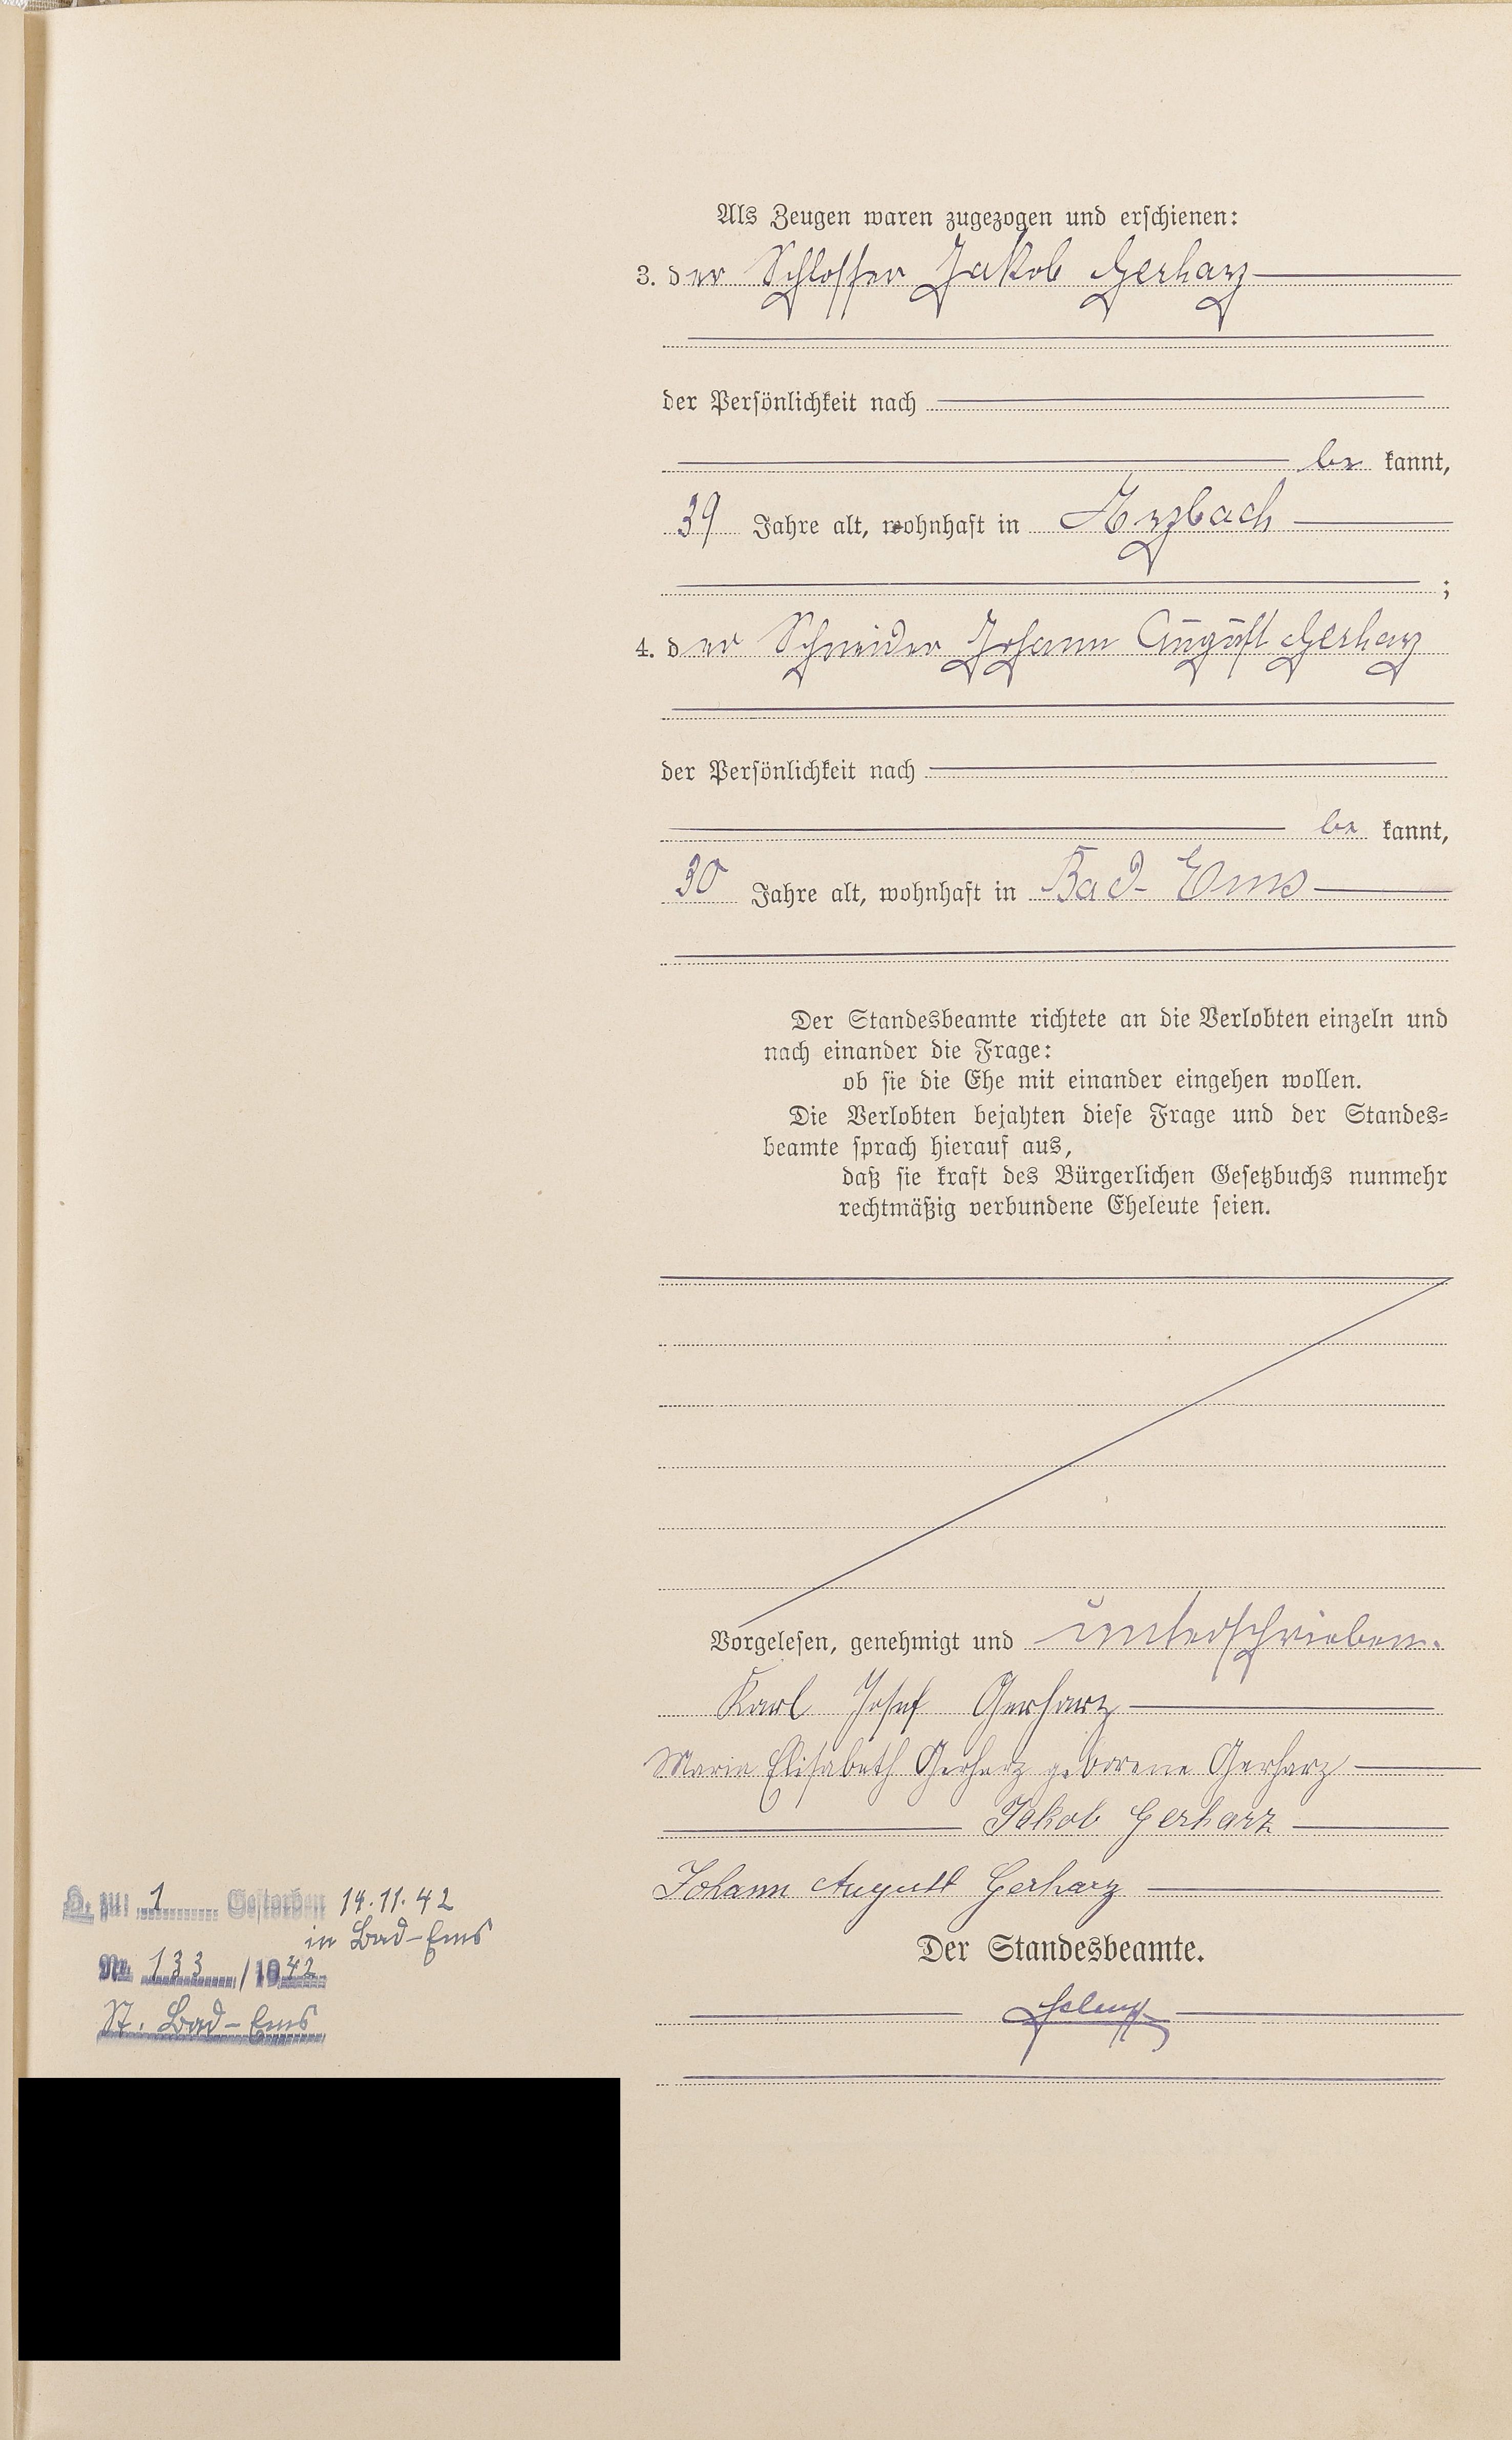 Als Zeugen waren zugezogen und erschienen:
3. der Schlosser Jakob Gerharz
der Persönlichkeit nach
be kannt,
39 Jahre alt, wohnhaft in Arzbach
;
4. der Schneider Johann August Gerharz
der Persönlichkeit nach
be kannt,
30 Jahre alt, wohnhaft in Bad-Ems
Der Standesbeamte richtete an die Verlobten einzeln und
nach einander die Frage:
ob sie die Ehe mit einander eingehen wollen.
Die Verlobten bejahten diese Frage und der Standes=
beamte sprach hierauf aus,
daß sie kraft des Bürgerlichen Gesetzbuchs nunmehr
rechtmäßig verbundene Eheleute seien.
Vorgelesen, genehmigt und unterschrieben.
Karl Josef Gerharz
Maria Elisabeth Gerharz geborene Gerharz
Jakob Gerharz
Johann August Gerharz
Der Standesbeamte.
H. zu: 1 Gestorben 14.11.42
in Bad-Ems
Nr. 133/1942
St. Bad-Ems